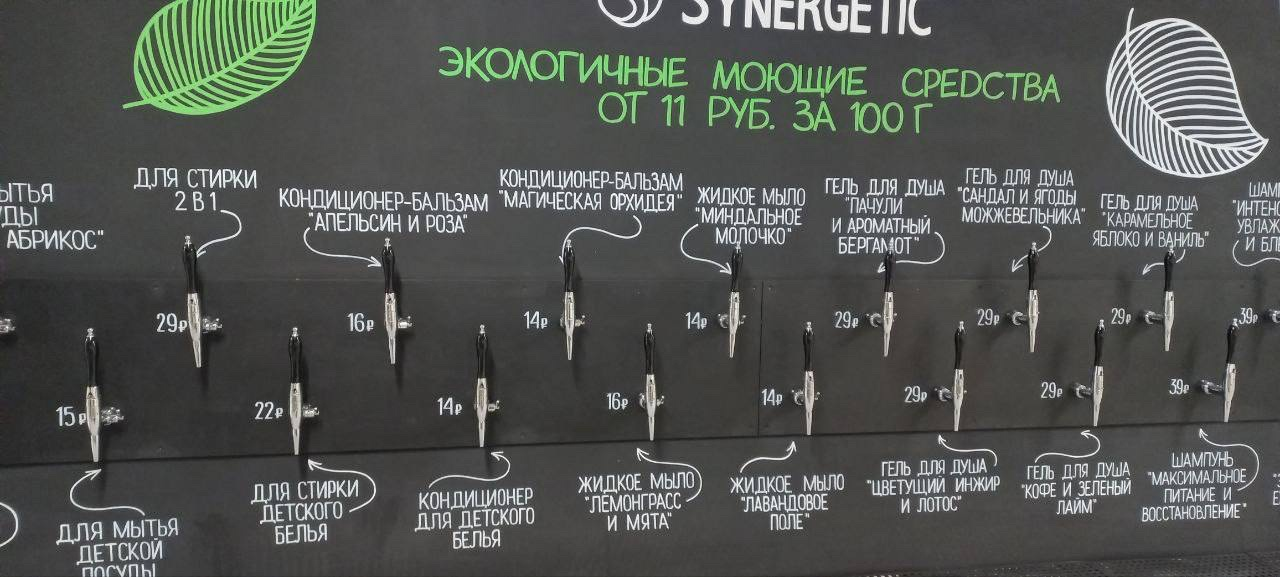 SYNERGETIC
ЭКОЛОГИЧНЫЕ МОЮЩИЕ СРЕДСТВА
ОТ 11 РУБ. ЗА 100 Г
АБРИКОС"
ДЛЯ СТИРКИ
2 В 1
КОНДИЦИОНЕР-БАЛЬЗАМ
"АПЕЛЬСИН И РОЗА"
КОНДИЦИОНЕР-БАЛЬЗАМ
"МАГИЧЕСКАЯ ОРХИДЕЯ"
ЖИДКОЕ МЫЛО
"МИНДАЛЬНОЕ
МОЛОЧКО"
ГЕЛЬ ДЛЯ ДУША
"ПАЧУЛИ
И АРОМАТНЫЙ
БЕРГАМОТ"
ГЕЛЬ ДЛЯ ДУША
"САНДАЛ И ЯГОДЫ
МОЖЖЕВЕЛЬНИКА"
ГЕЛЬ ДЛЯ ДУША
"КАРАМЕЛЬНОЕ
ЯБЛОКО И ВАНИЛЬ"
29₽
16₽
14₽
14₽
29₽
29₽
29₽
39₽
15₽
22₽
14₽
16₽
14₽
29₽
29₽
39₽
ДЛЯ МЫТЬЯ
ДЕТСКОЙ
ПОСУДЫ
ДЛЯ СТИРКИ
ДЕТСКОГО
БЕЛЬЯ
КОНДИЦИОНЕР
ДЛЯ ДЕТСКОГО
БЕЛЬЯ
ЖИДКОЕ МЫЛО
"ЛЕМОНГРАСС
И МЯТА"
ЖИДКОЕ МЫЛО
"ЛАВАНДОВОЕ
ПОЛЕ"
ГЕЛЬ ДЛЯ ДУША
"ЦВЕТУЩИЙ ИНЖИР
И ЛОТОС"
ГЕЛЬ ДЛЯ ДУША
"КОФЕ И ЗЕЛЕНЫЙ
ЛАЙМ"
ШАМПУНЬ
"МАКСИМАЛЬНОЕ
ПИТАНИЕ И
ВОССТАНОВЛЕНИЕ"